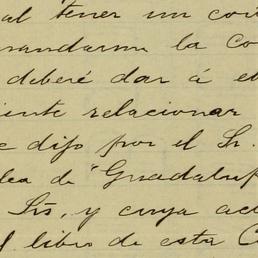 al tener un con
mandarnn la Co
deberé dar á el
iente relacionar
e dijo por el Sr.
lea de "Guadalup
Srs, y cuya ac
l libro de esta C